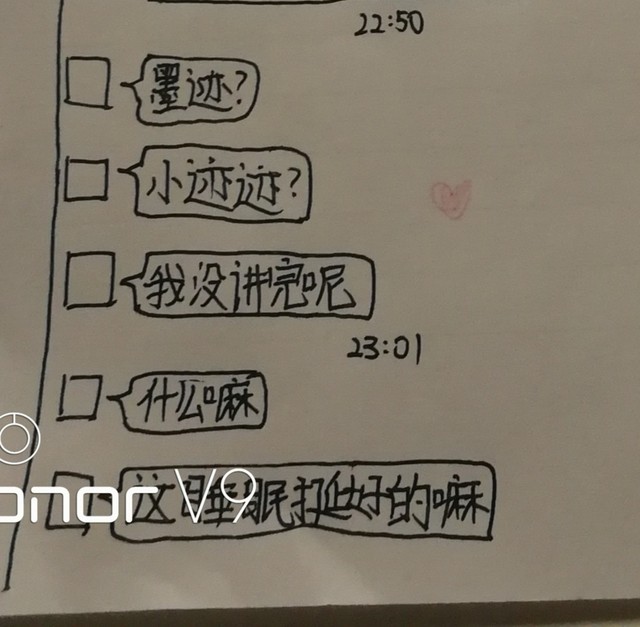 22:50
墨迹?
小迹迹?
我没讲完呢
23:01
什么嘛
这睡眠挺好的嘛
onor V9